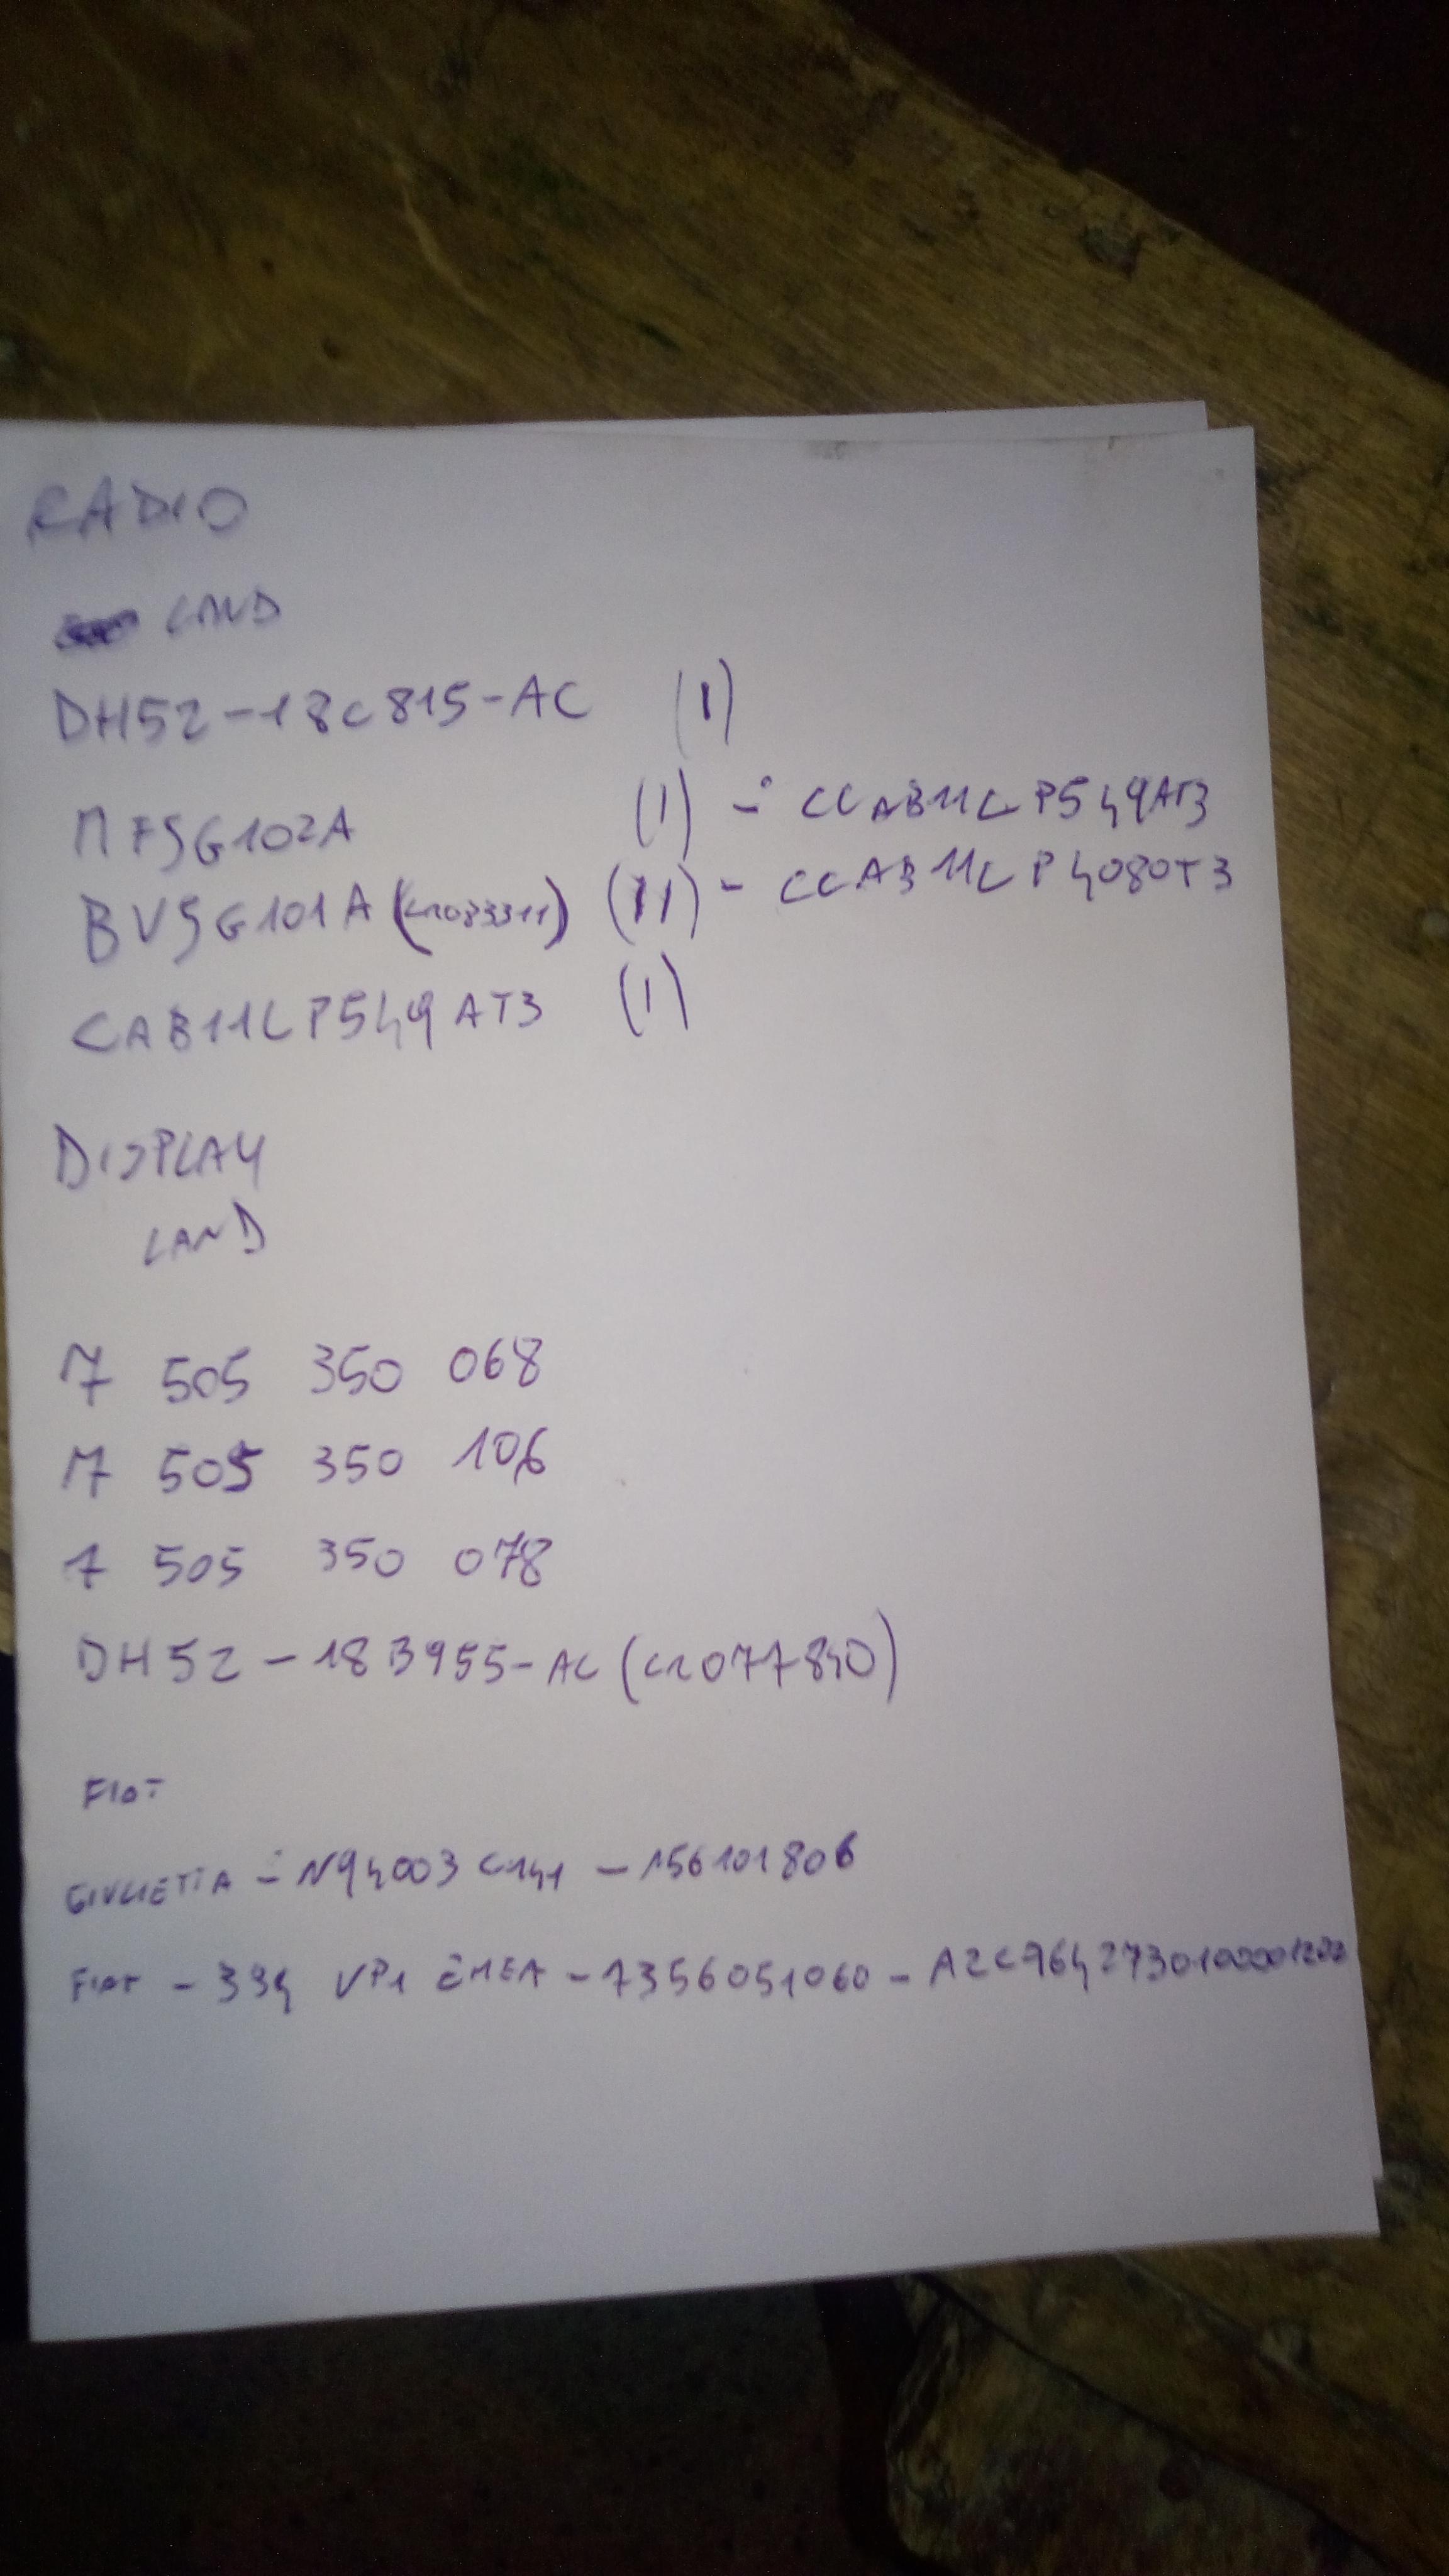 RADIO
LAND
DH52-18C815-AC (I)
MF5G102A (I) - CCAB11LP549AT3
BV5G101A (LR083311) (II) - CCAB11LP4080T3
CAB11LP549AT3 (I)
DISPLAY
LAND
7 505 350 068
7 505 350 106
7 505 350 078
DH52-18B955-AC (LR077840)
FIAT
GIULIETTA - N94003C141 - 156101806
FIAT - 334 VP1 EMEA - 7356051060 -